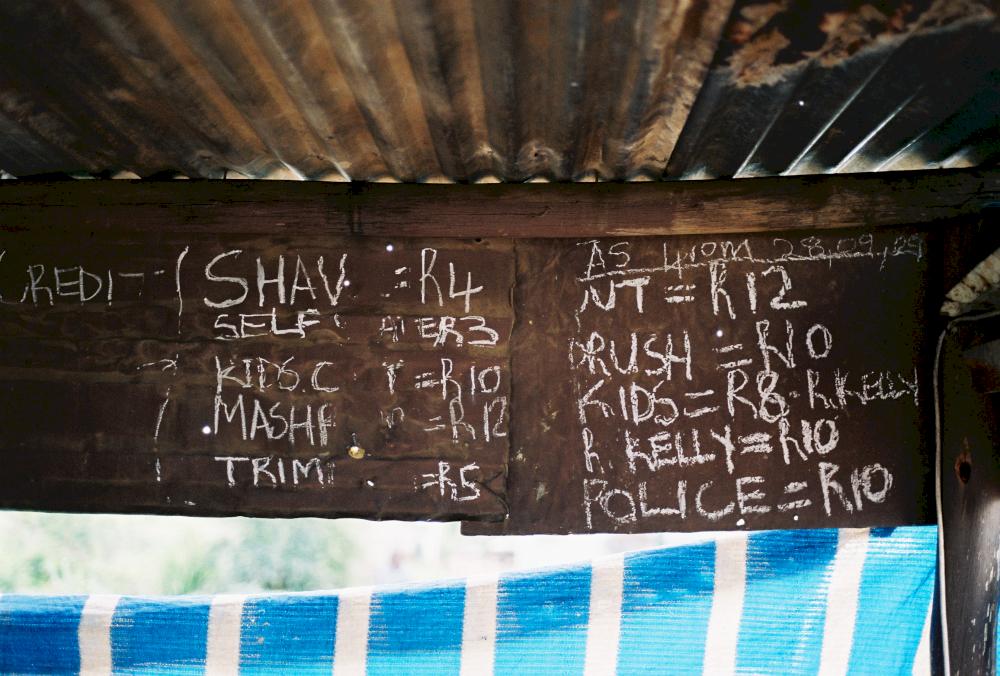 SHAV =R4
SELF R3
KIDS C =R10
MASH =R12
TRIM =R5
AS from 28,09,
NT = R12
=R10
KIDS=R8-R.KELLY
R. KELLY=R10
POLICE=R10